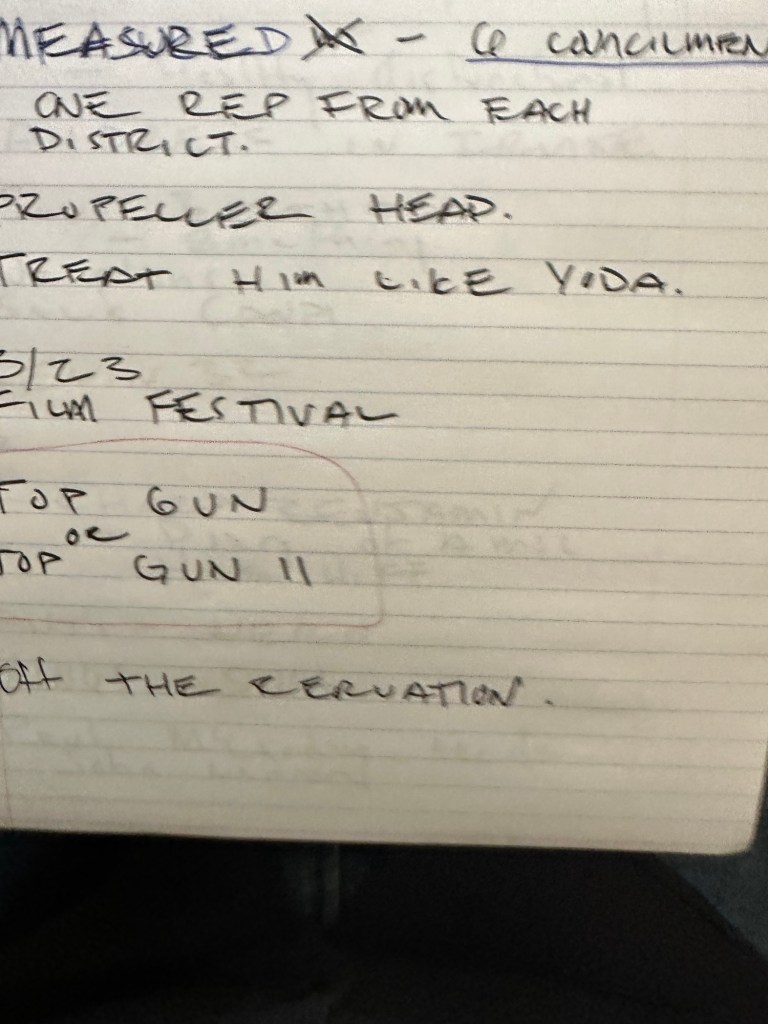 MEASURED - 6 CANCILMEN
ONE REP FROM EACH
DISTRICT.
PROPELLER HEAD.
TREAT HIM LIKE YODA.
3/23
FILM FESTIVAL
TOP GUN
OR
TOP GUN II
OFF THE RERVATION.